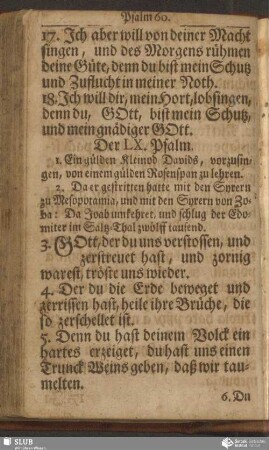 Psalm 60.
17. Ich aber will von deiner Macht
singen, und des Morgens rühmen
deine Güte, denn du bist mein Schutz
und Zuflucht in meiner Noth.
18. Ich will dir, mein Hort, lobsingen,
denn du, GOtt, bist mein Schutz,
und mein gnädiger GOtt.
Der LX. Psalm.
1. Ein gülden Kleinod Davids, vorzusin-
gen, von einem gülden Rosenspan zu lehren.
2. Da er gestritten hatte mit den Syrern
zu Mesopotamia, und mit den Syrern von Zo-
ba: Da Joab umkehret, und schlug der Edo-
miter im Saltz-Thal zwölff tausend.
3. GOtt, der du uns verstossen, und
zerstreuet hast, und zornig
warest, tröste uns wieder.
4. Der du die Erde beweget und
zerrissen hast, heile ihre Brüche, die
so zerschellet ist.
5. Denn du hast deinem Volck ein
hartes erzeiget, du hast uns einen
Trunck Weins geben, daß wir tau-
melten.
6. Du
SLUB